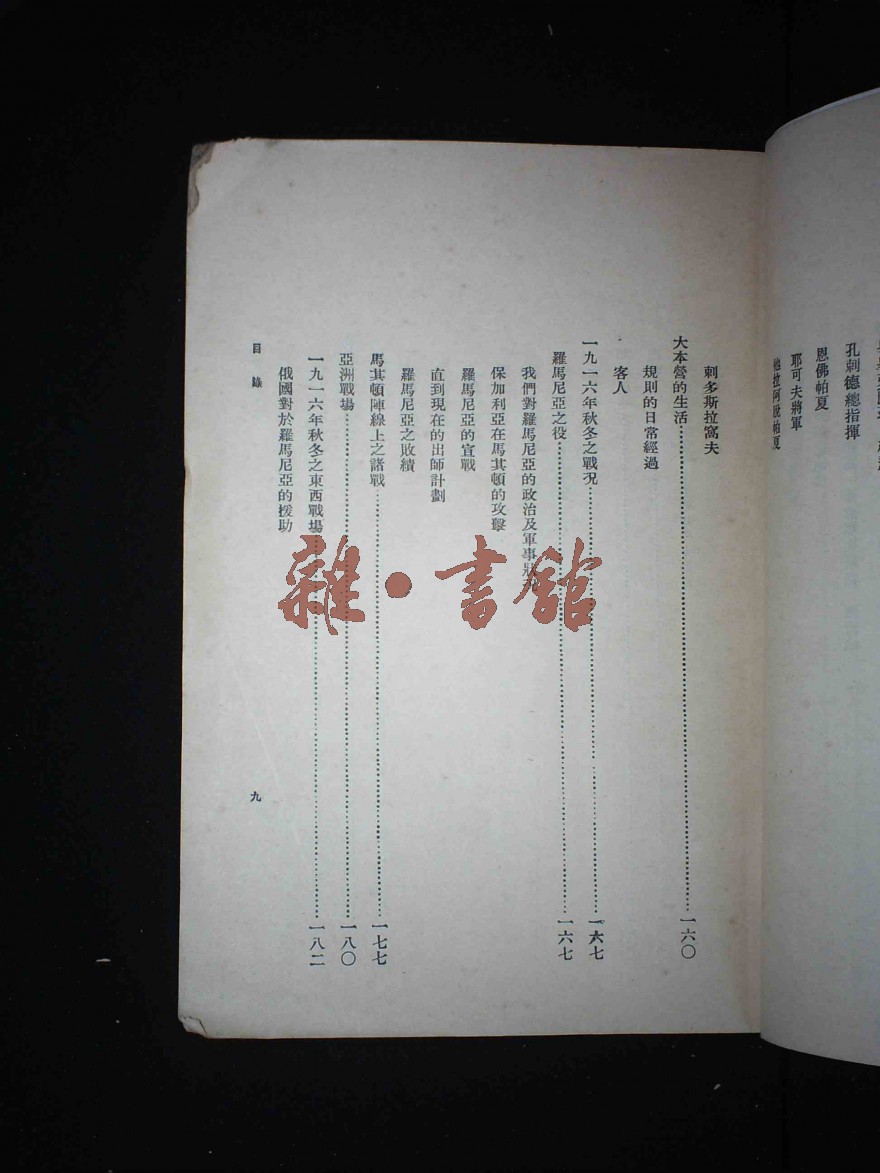 孔刺德總指揮
恩佛帕夏
耶可夫將軍
刺多斯拉窩夫
大本營的生活……一六〇
規則的日常經過
客人
一九一六年秋冬之戰况……一六七
羅馬尼亞之役……一六七
我們對羅馬尼亞的政治及軍事狀
保加利亞在馬其頓的攻擊
羅馬尼亞的宣戰
直到現在的出師計劃
羅馬尼亞之敗績
馬其頓陣線上之諸戰……一七七
亞洲戰場……一八〇
一九一六年秋冬之東西戰場……一八二
俄國對於羅馬尼亞的援助
目錄
九
雜·書館